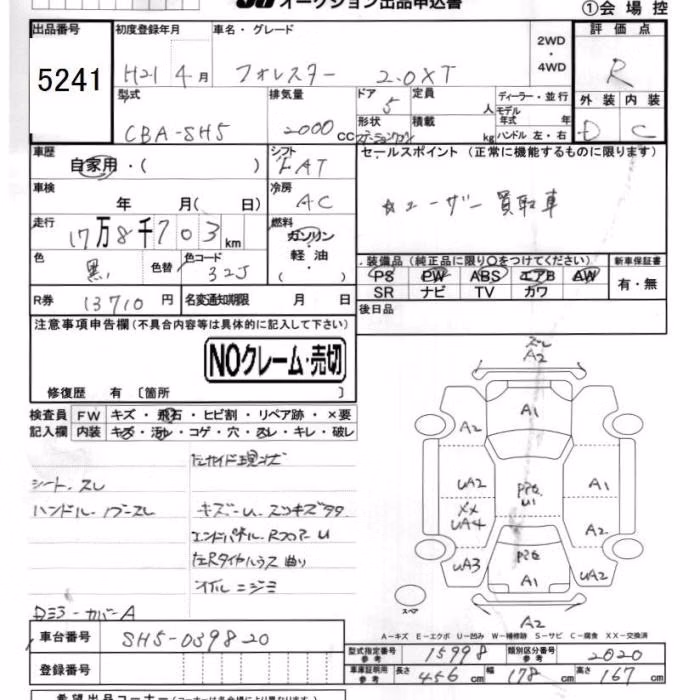 オークション出品申込書
①会場控
出品番号
5241
初度登録年月
H21 4月
車名・グレード
フォレスター 2.0XT
2WD
・
4WD
評価点
R
型式
CBA-SH5
排気量
2000 CC
ドア
5
定員
人
形状
ステーションワゴン
積載
kg
ディーラー・並行
モデル
年式 年
ハンドル 左・右
外装
D
内装
C
車歴
自家用・( )
シフト
FAT
車検
年 月( 日)
冷房
AC
走行
17万8千703km
燃料
ガソリン
・
軽油
色
黒
色替
色コード
32J
R券
13710円
名変通知期限 月 日
セールスポイント (正常に機能するものに限ります)
ユーザー買取車
装備品(純正品に限り○をつけてください)
新車保証書
PS PW ABS エアB AW
SR ナビ TV カワ
有・無
後日品
注意事項申告欄(不具合内容等は具体的に記入して下さい)
NOクレーム・売切
修復歴 有 〔箇所 〕
検査員 FW キズ・飛石・ヒビ割・リペア跡・×要
記入欄 内装 キズ・汚れ・コゲ・穴・スレ・キレ・破レ
シート、スレ
ハンドル
キズ・U
エンドパネル、Rフロアー U
左Rタイヤハウス 曲り
オイルニジミ
Dミラーカバー A
ズレ
A2
A1
A2
UA2
PDR
U1
A1
XX
UA4
A2
UA3
PDR
A1
UA2
スペア
A2
A-キズ E-エクボ U-凹み W-補修跡 S-サビ C-腐食 XX-交換済
車台番号
SH5-039820
登録番号
型式指定番号
参考
15998
類別区分番号
参考
2020
車庫証明用
参考
長さ 456cm 幅 178cm 高さ 167cm
希望出品コーナー